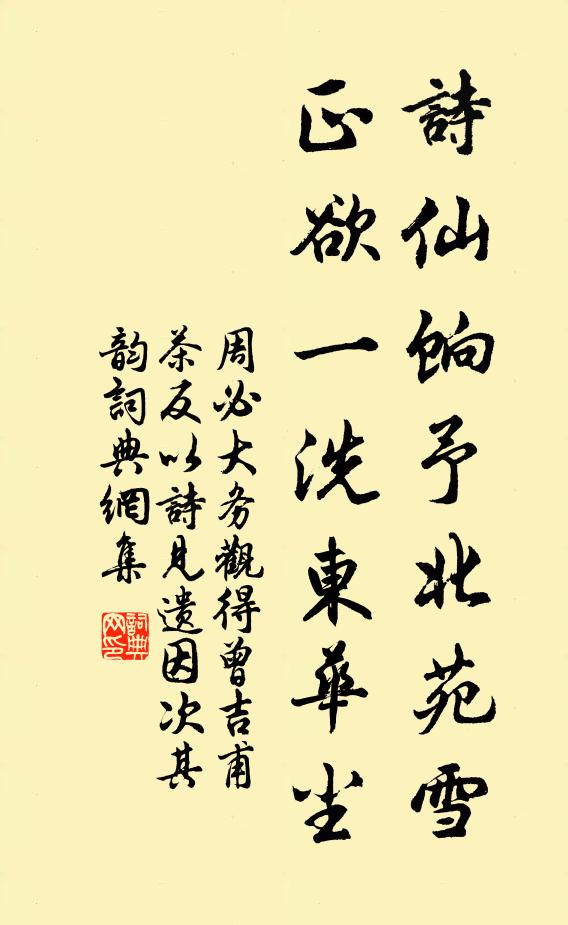 詩仙餉予北苑雪
正欲一洗東華尘
周必大务觀得曾吉甫
茶反以詩見遺因次其
韵詞典網集
詞典网印